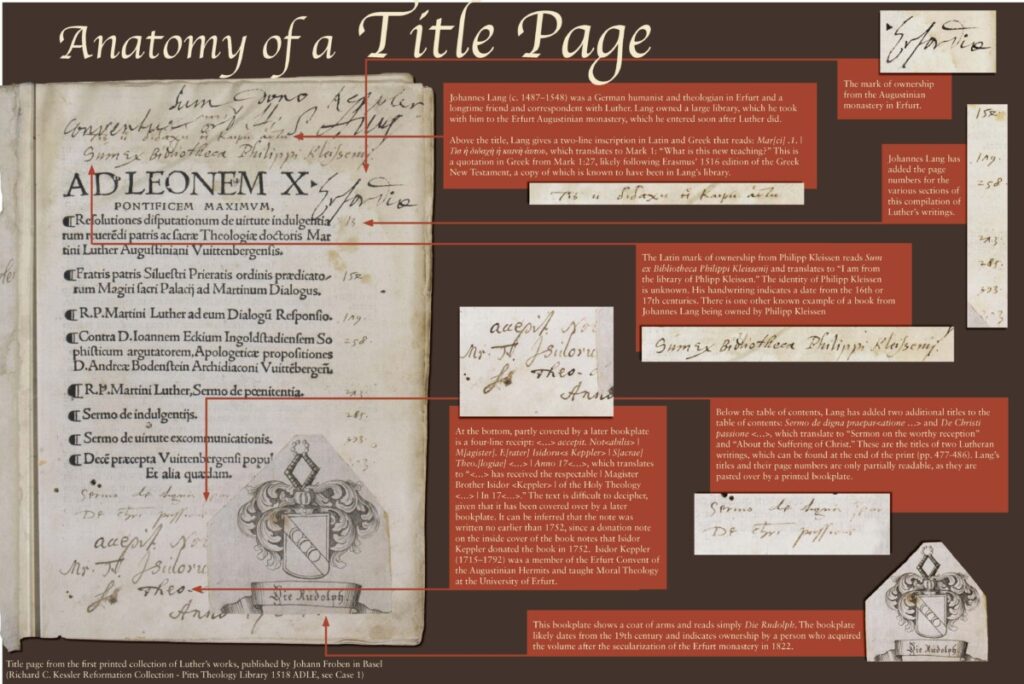 Anatomy of a Title Page
Sum Dono Keppler
Conventus
Sum ex Bibliotheca Philippi Kleissenij
AD LEONEM X.
Erfordiæ
PONTIFICEM MAXIMVM,
¶Resolutiones disputationum de uirtute indulgentia
rum reuerēdi patris ac sacræ Theologiæ doctoris Mar
tini Luther Augustiniani Vuittenbergensis.
13
¶Fratris patris Siluestri Prieratis ordinis prædicato-
rum Magiri sacri Palacij ad Martinum Dialogus.
152
¶R.P.Martini Luther ad eum Dialogū Responsio.
179
¶Contra D.Ioannem Eckium Ingoldstadiensem So
phisticum argutatorem, Apologeticæ propositiones
D.Andreæ Bodenstein Archidiaconi Vuittēbergeñ.
258
¶R.P.Martini Luther, Sermo de pœnitentia.
¶Sermo de indulgentijs.
285.
¶Sermo de uirtute excommunicationis.
303
¶Decē præcepta Vuittenbergensi popul
Et alia quædam.
Sermo de digna
De Christi passione
accepit Not
Mr. F. Isidoru
SS Theo-
Anno
Die Rudolph.
Title page from the first printed collection of Luther's works, published by Johann Froben in Basel
(Richard C. Kessler Reformation Collection - Pitts Theology Library 1518 ADLE, see Case 1)
Johannes Lang (c. 1487–1548) was a German humanist and theologian in Erfurt and a
longtime friend and correspondent with Luther. Lang owned a large library, which he took
with him to the Erfurt Augustinian monastery, which he entered soon after Luther did.
Above the title, Lang gives a two-line inscription in Latin and Greek that reads: Mar[ci] .1. |
Τίσ ἡ διδαχὴ ἡ καινὴ αὕτου, which translates to Mark 1: “What is this new teaching?” This is
a quotation in Greek from Mark 1:27, likely following Erasmus’ 1516 edition of the Greek
New Testament, a copy of which is known to have been in Lang’s library.
Erfordiæ
The mark of ownership
from the Augustinian
monastery in Erfurt.
Johannes Lang has
added the page
numbers for the
various sections of
this compilation of
Luther’s writings.
152
179
258
293.
285.
303.
The Latin mark of ownership from Philipp Kleissen reads Sum
ex Bibliotheca Philippi Kleissenij and translates to “I am from
the library of Phlipp Kleissen.” The identity of Philipp Kleissen
is unknown. His handwriting indicates a date from the 16th or
17th centuries. There is one other known example of a book from
Johannes Lang being owned by Philipp Kleissen
Sum ex Bibliotheca Philippi Kleissenij.
accepit Not
Mr. F. Isidoru
SS Theo-
Anno
At the bottom, partly covered by a later bookplate
is a four-line receipt: <...> accepit. Not<abilis> |
M[agister]. F[rater] Isidoru<s Keppler> | S[acrae]
Theo.[logiae] <...> | Anno 17<...>, which translates
to “<...> has received the respectable | Magister
Brother Isidor <Keppler> | of the Holy Theology
<...> | In 17<...>.” The text is difficult to decipher,
given that it has been covered over by a later
bookplate. It can be inferred that the note was
written no earlier than 1752, since a donation note
on the inside cover of the book notes that Isidor
Keppler donated the book in 1752. Isidor Keppler
(1715–1792) was a member of the Erfurt Convent of
the Augustinian Hermits and taught Moral Theology
at the University of Erfurt.
Below the table of contents, Lang has added two additional titles to the
table of contents: Sermo de digna praepar<atione ...> and De Christi
passione <...>, which translate to “Sermon on the worthy reception”
and “About the Suffering of Christ.” These are the titles of two Lutheran
writings, which can be found at the end of the print (pp. 477-486). Lang’s
titles and their page numbers are only partially readable, as they are
pasted over by a printed bookplate.
Sermo de digna
De Christi passione
This bookplate shows a coat of arms and reads simply Die Rudolph. The bookplate
likely dates from the 19th century and indicates ownership by a person who acquired
the volume after the secularization of the Erfurt monastery in 1822.
Die Rudolph.